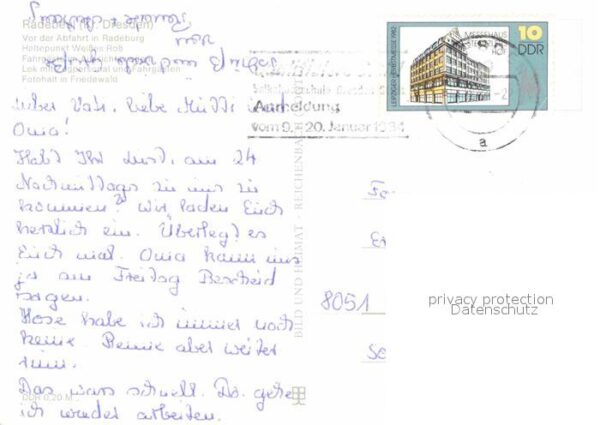 Radebeul (Kr. Dresden)
Vor der Abfahrt in Radeburg
Haltepunkt Weißes Roß
Lok mit Zugpersonal und Fahrgästen
Fotohalt in Friedewald
lieber Vati, liebe Mutti,
Oma!
Habt Ihr Lust, am 24
Nachmittags zu mir zu
kommen? Wir laden Euch
herzlich ein. Überlegt es
Euch mal. Oma kann uns
ja am Freitag Bescheid
sagen.
Hose habe ich immer noch
keine. Renne aber weiter
rum.
Das wars schnell. Da gehe
ich wieder arbeiten.
DDR 0,20 M
BILD UND HEIMAT · REICHENBACH
Anmeldung
vom 9.-20. Januar 1984
LEIPZIGER HERBSTMESSE 1982
MESSEHAUS
HOF
10
DDR
a
8051
privacy protection
Datenschutz